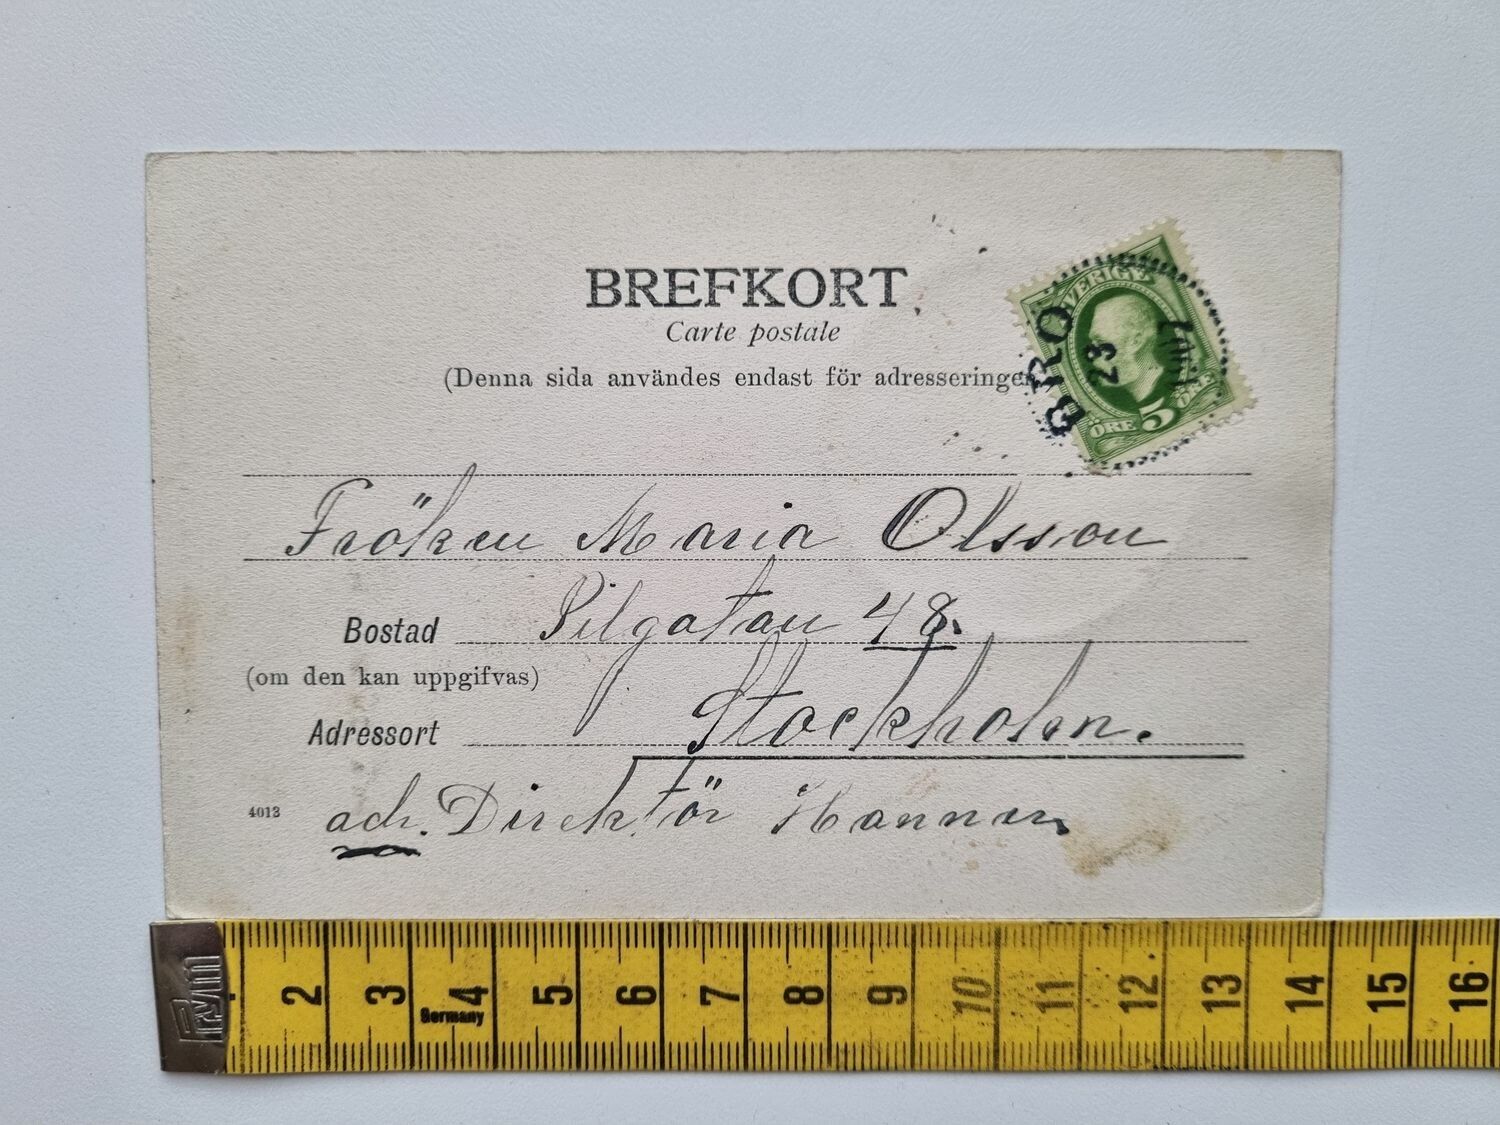 BREFKORT
Carte postale
(Denna sida användes endast för adresseringen
SVERIGE
5
ÖRE ÖRE
BRO
23
1907
Fröken Maria Olsson
Bostad Pilgatan 48.
(om den kan uppgifvas)
Adressort Stockholm.
4013 adr. Direktör Hanner
Prym
2 3 4 5 6 7 8 9 10 11 12 13 14 15 16
Germany